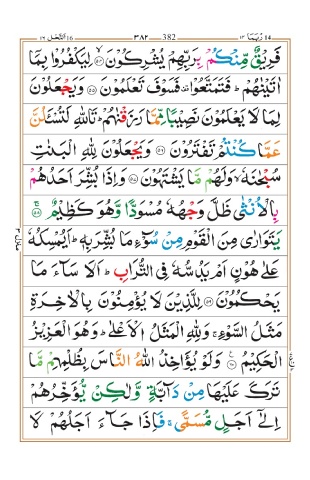 النحل ١٦ 382 ٣٨٢ ربما ١٤
فَرِيْقٌ مِّنْكُمْ بِرَبِّهِمْ يُشْرِكُوْنَ ۙ‏﴿۵۴﴾ لِيَكْفُرُوْا بِمَاۤ
اٰتَيْنٰهُمْ ؕ فَتَمَتَّعُوْا فَسَوْفَ تَعْلَمُوْنَ ﴿۵۵﴾ وَيَجْعَلُوْنَ
لِمَا لَا يَعْلَمُوْنَ نَصِيْبًا مِّمَّا رَزَقْنٰهُمْ ؕ تَاللّٰهِ لَتُسْــَٔلُنَّ
عَمَّا كُنْتُمْ تَفْتَرُوْنَ ﴿۵۶﴾ وَيَجْعَلُوْنَ لِلّٰهِ الْبَنٰتِ
سُبْحٰنَهٗ ۙ وَلَهُمْ مَّا يَشْتَهُوْنَ ﴿۵۷﴾ وَاِذَا بُشِّرَ اَحَدُهُمْ
بِالْاُنْثٰى ظَلَّ وَجْهُهٗ مُسْوَدًّا وَّهُوَ كَظِيْمٌ ۚ‏﴿۵۸﴾
يَتَوَارٰى مِنَ الْقَوْمِ مِنْ سُوْٓءِ مَا بُشِّرَ بِهٖ ؕ اَيُمْسِكُهٗ
عَلٰى هُوْنٍ اَمْ يَدُسُّهٗ فِى التُّرَابِ ؕ اَلَا سَآءَ مَا
يَحْكُمُوْنَ ﴿۵۹﴾ لِلَّذِيْنَ لَا يُؤْمِنُوْنَ بِالْاٰخِرَةِ
مَثَلُ السَّوْءِ ۚ وَلِلّٰهِ الْمَثَلُ الْاَعْلٰى ؕ وَهُوَ الْعَزِيْزُ
الْحَكِيْمُ ﴿۶۰﴾ وَلَوْ يُؤَاخِذُ اللّٰهُ النَّاسَ بِظُلْمِهِمْ مَّا
تَرَكَ عَلَيْهَا مِنْ دَآبَّةٍ وَّلٰـكِنْ يُّؤَخِّرُهُمْ
اِلٰٓى اَجَلٍ مُّسَمًّى ۚ فَاِذَا جَآءَ اَجَلُهُمْ لَا